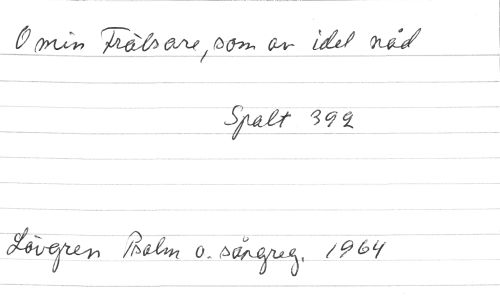 O min Frälsare, som av idel nåd
Spalt 392
Lövgren Psalm o. sångreg. 1964